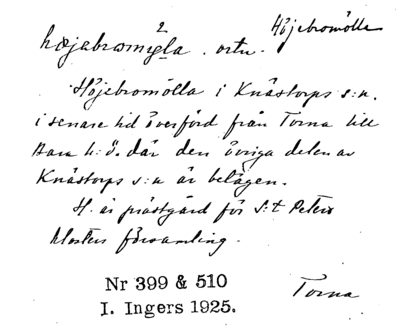 Höjebromölla
höjabromỳla. ortn.
Höjebromölla i Knästorps s:n.
i senare tid överförd från Torna till
Bara h:d. där den övriga delen av
Knästorps s:n är belägen.
H. är prästgård för S:t Peters
klosters församling.
Nr 399 & 510
I. Ingers 1925.
Torna